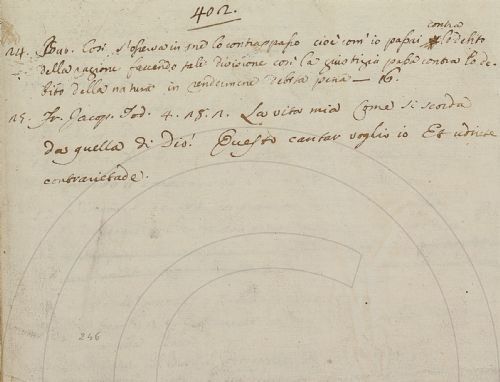 402.
contra
24. Bub. Cosi s'oserva in me lo contrappasso cioè com'io passai lo debito
della ragione facendo tale divisione così la giustizia passa contra lo de-
bito della natura in rendermene debita pena — 16.
25. Fr. Jacop. Tod. 4. 28. 2. La vita mia Come si scorda
da quella di Dio! Questo cantar voglio io Et udirete
contrarietade.
246